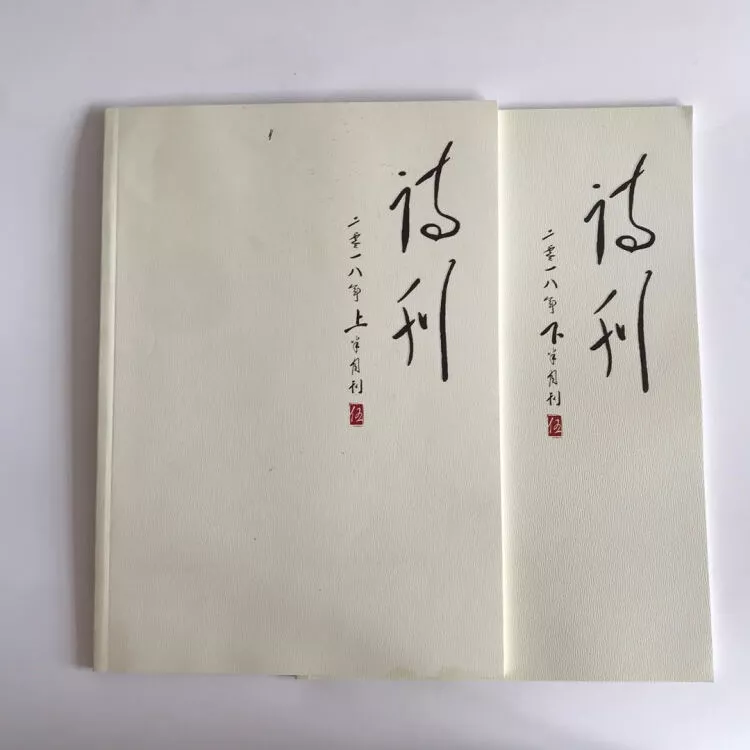 诗刊
二零一八年上半月刊
伍
诗刊
二零一八年下半月刊
伍